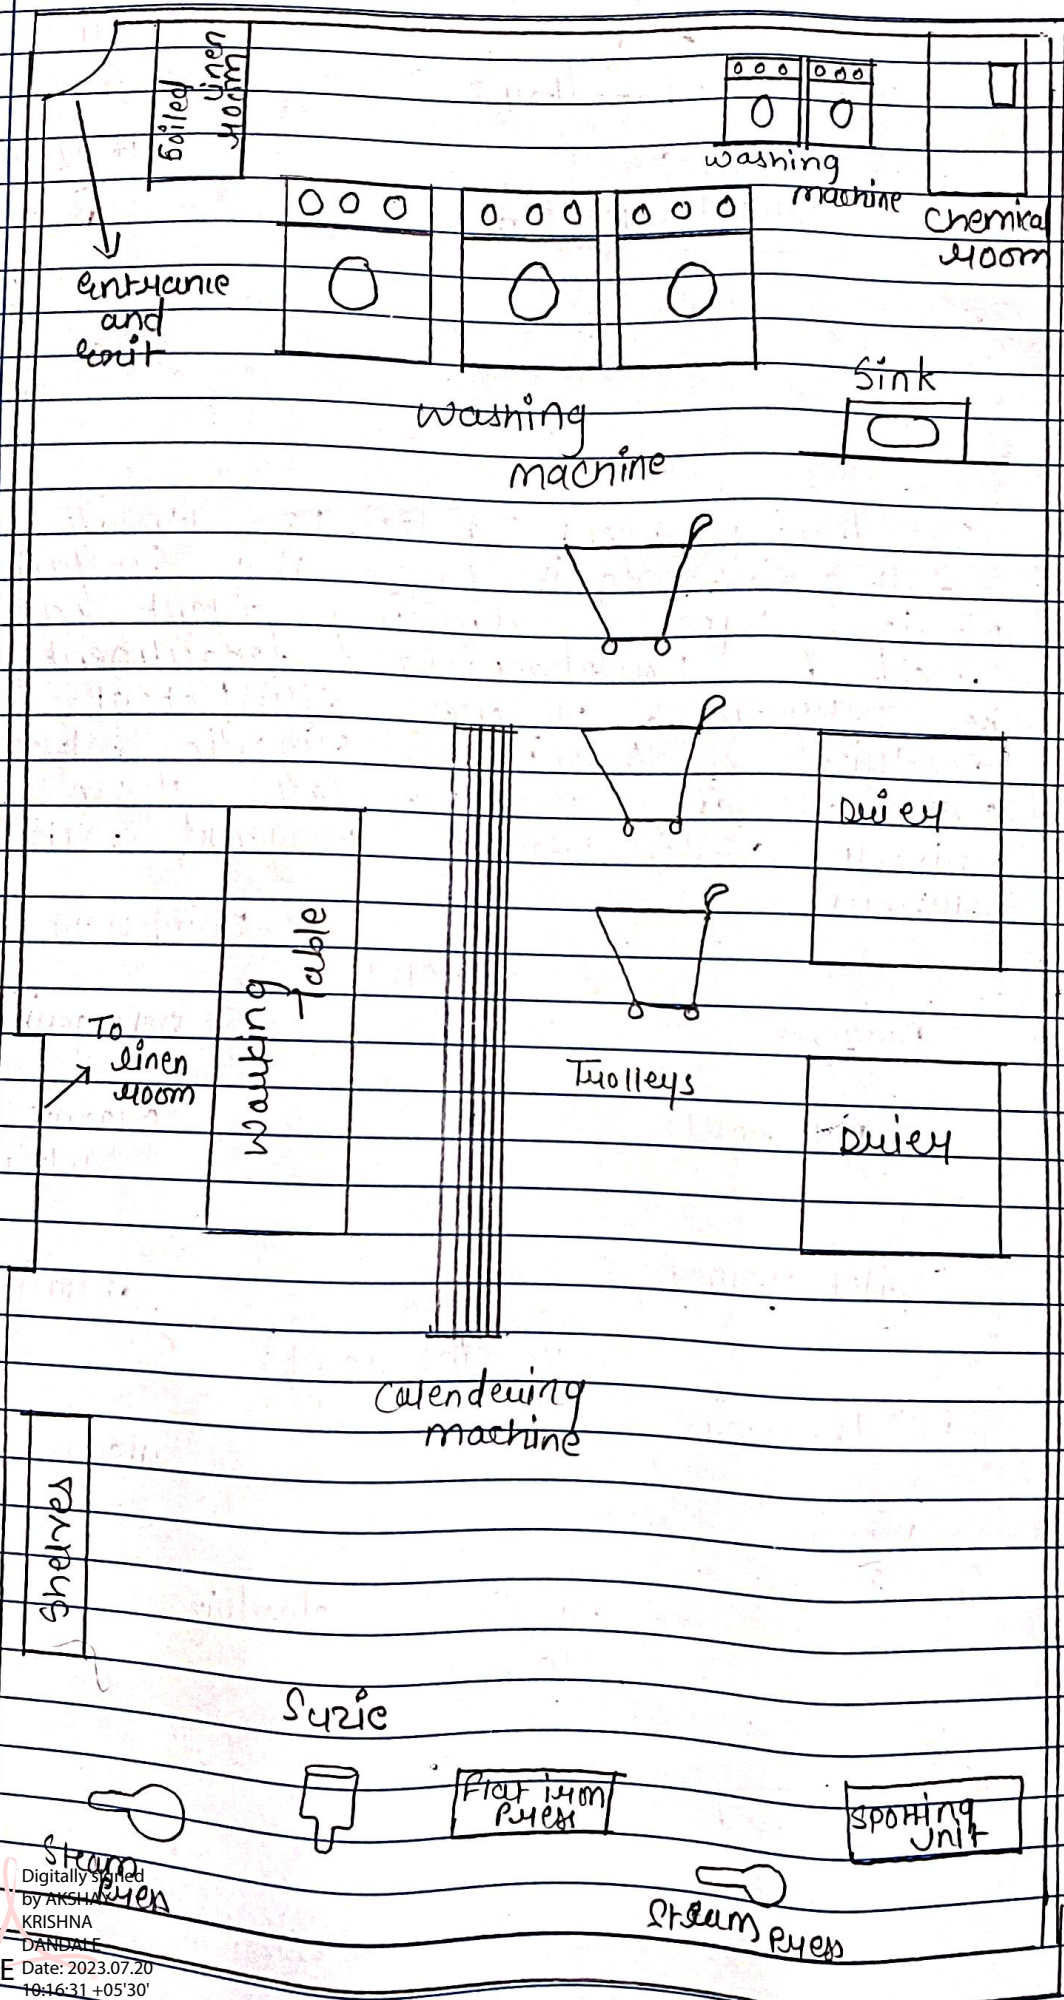 Soiled
Linen
room
washing
machine
Chemical
room
entrance
and
exit
Sink
washing
machine
Drier
Working
Table
To
linen
room
Trolleys
Drier
Calendering
machine
Shelves
Suzie
Flat iron
Press
Spotting
Unit
Steam
Press
Steam
Press
Digitally signed
by AKSHAY
KRISHNA
DANDALE
Date: 2023.07.20
10:16:31 +05'30'